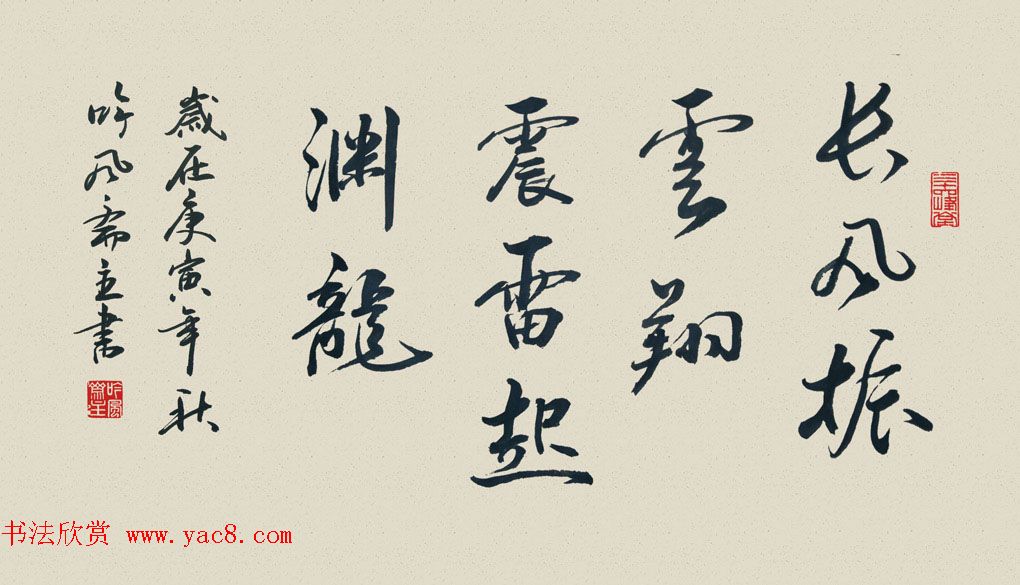 长风振
雲翔
震雷起
渊龍
歲在庚寅年秋
吟风斋主書
书法欣赏 www.yac8.com